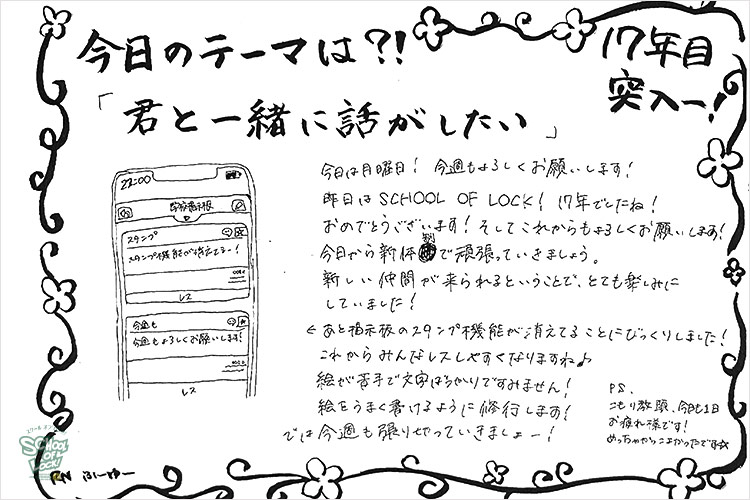 今日のテーマは?!
17年目
突入ー!
「君と一緒に話がしたい」
22:00
学校掲示板
スタンプ
スタンプ機能が消えてるー!
レス
今週も
今週もよろしくお願いします!
レス
今日は月曜日! 今週もよろしくお願いします!
昨日はSCHOOL OF LOCK! 17年でしたね!
おめでとうございます! そしてこれからもよろしくお願いします!
今日から新体制で頑張っていきましょう。
新しい仲間が来られるということで、とても楽しみに
していました!
←あと掲示板のスタンプ機能が消えてることにびっくりしました!
これからみんなレスしやすくなりますね♪
絵が苦手で文字ばっかりですみません!
絵をうまく書けるように修行します!
では今週も張り切っていきましょー!
P.S.
こもり教頭、今日も1日
お疲れ様です!
めっちゃかっこよかったです☆
スクール オブ ロック
SCHOOL OF LOCK!
RN ふーゆー